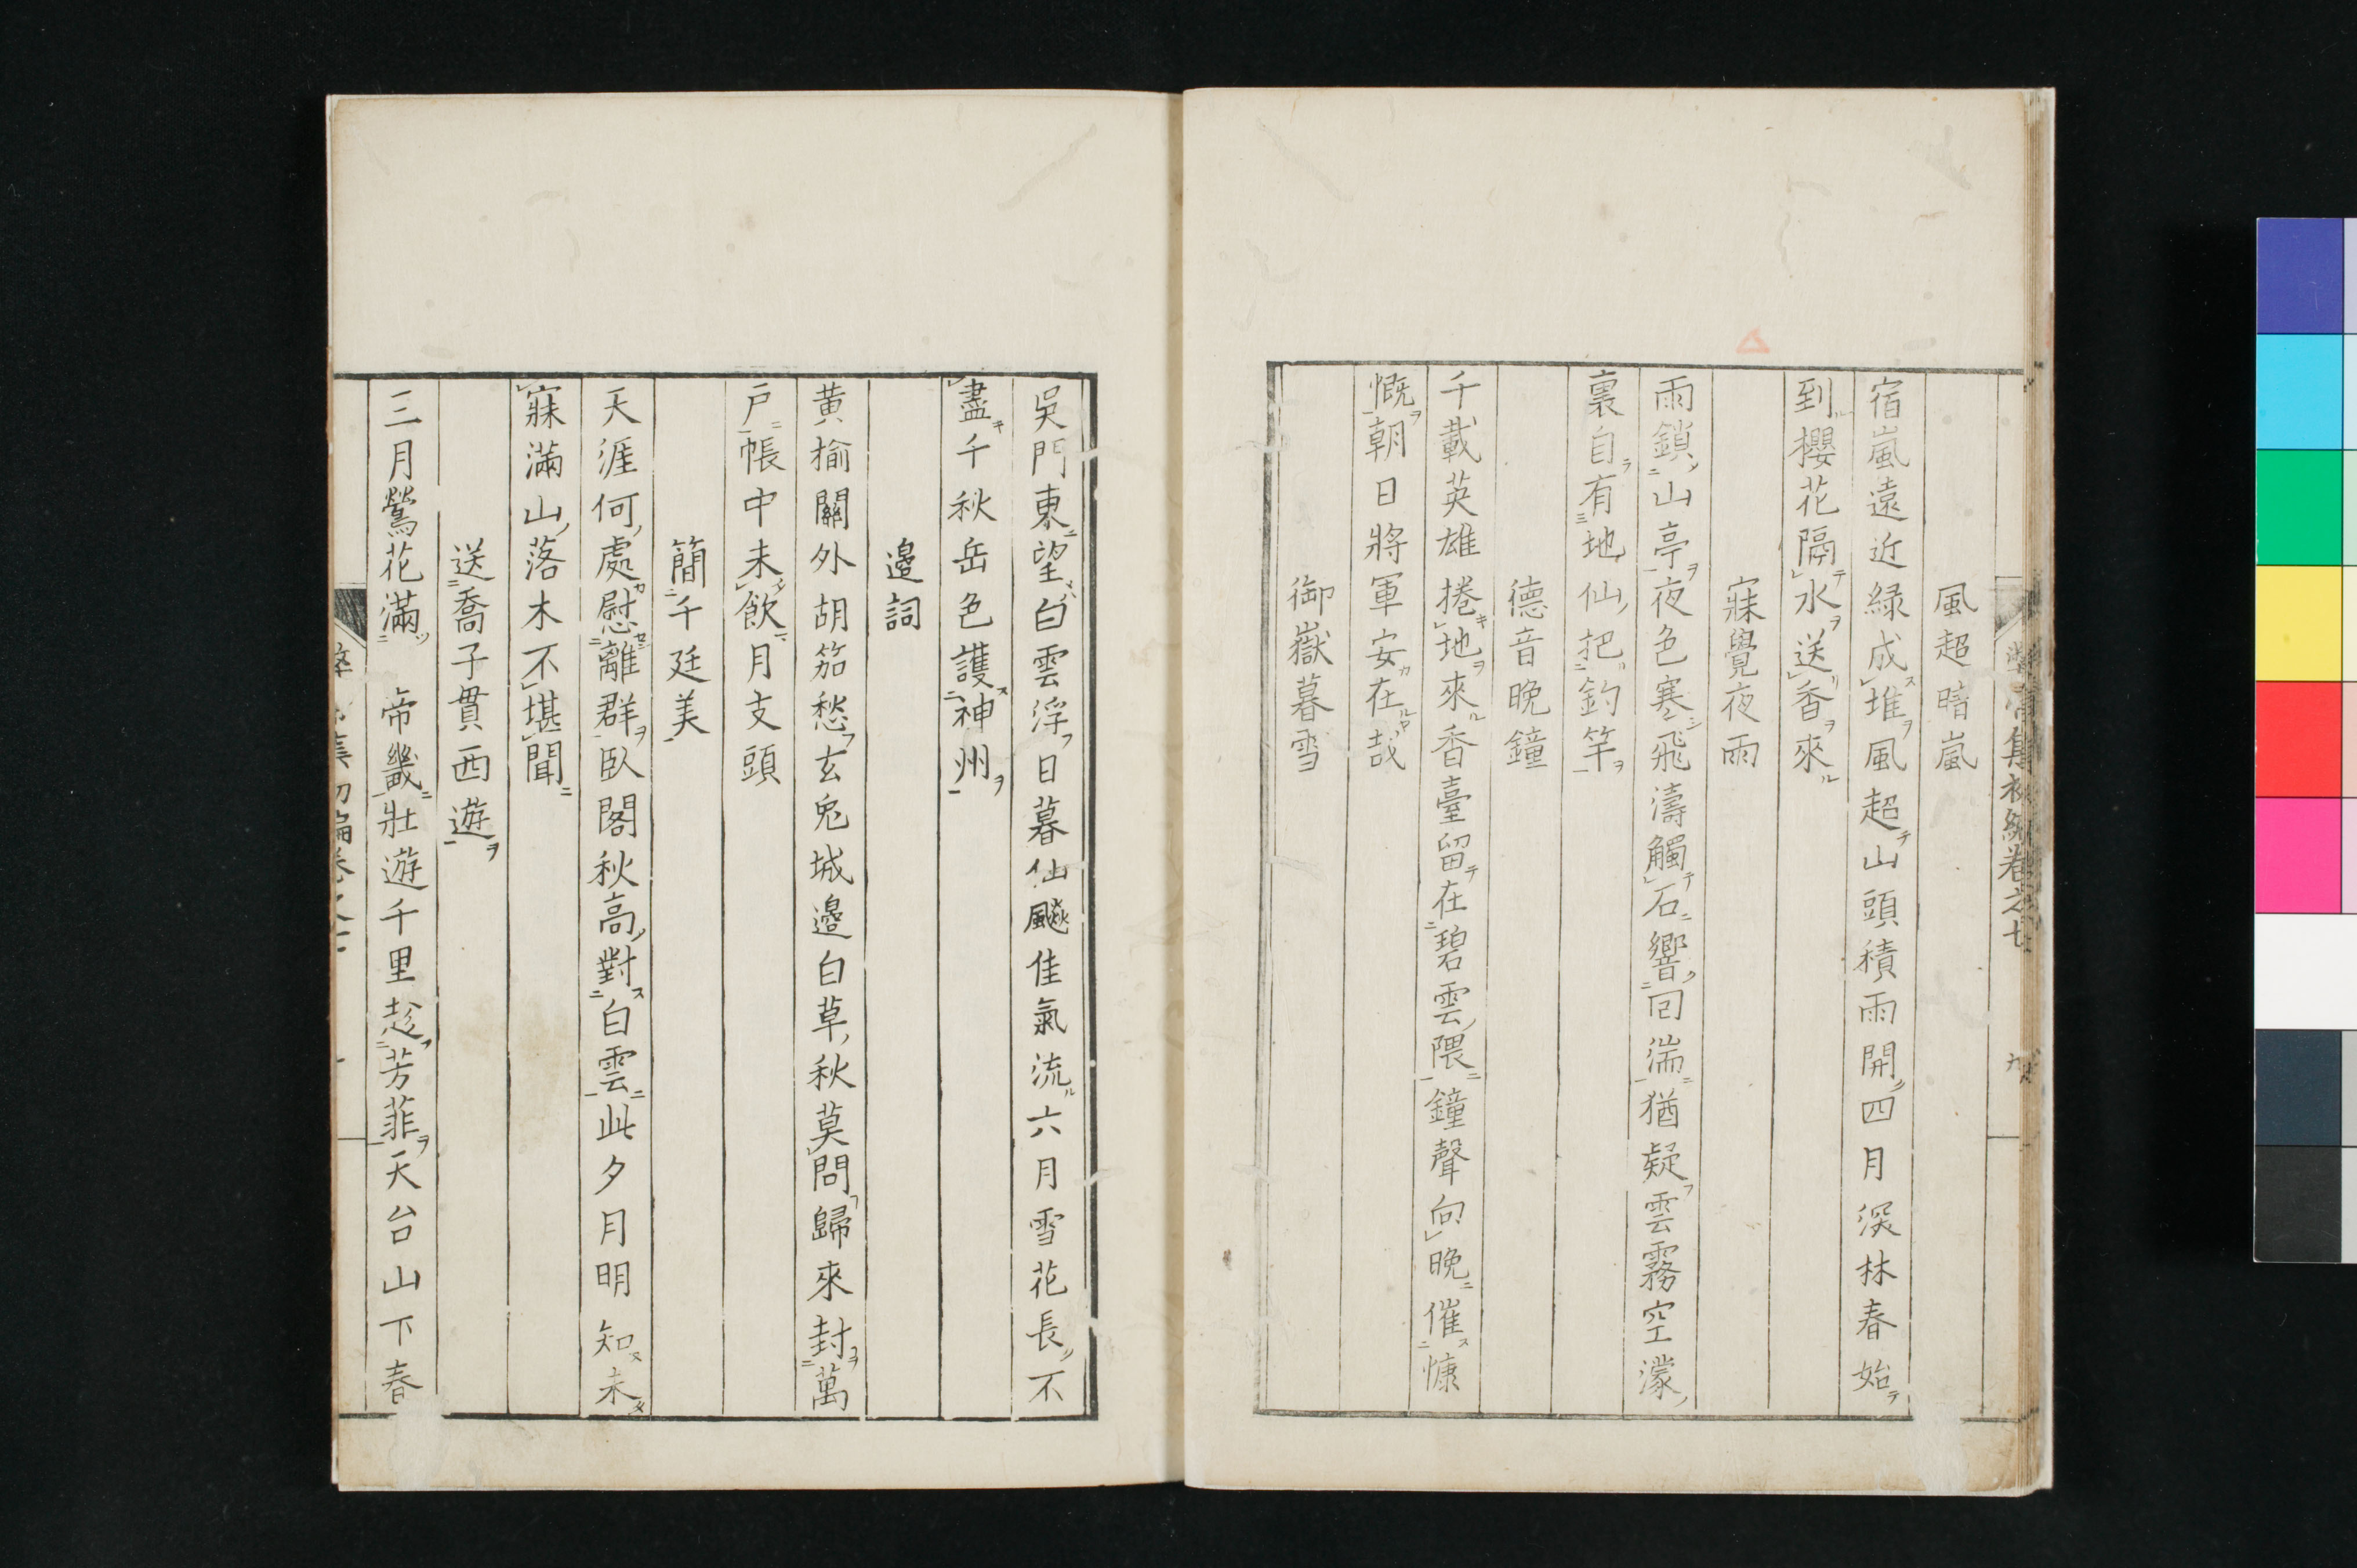 風超晴嵐
宿嵐遠近緑成堆風超山頭積雨開四月深林春始
到櫻花隔水送香來
寐覺夜雨
雨鎖山亭夜色寒飛濤觸石響回湍猶疑雲霧空濛
裏自有地仙把釣竿
德音晩鐘
千載英雄捲地來香臺留在碧雲隈鐘聲向晩催慷
慨朝日將軍安在哉
御嶽暮雪
吳門東望白雲浮日暮仙飈佳氣流六月雪花長不
盡千秋岳色護神州
邉詞
黄楡關外胡笳愁玄兎城邉白草秋莫問歸來封萬
戸帳中未飲月支頭
簡千廷美
天涯何處慰離群臥閣秋高對白雲此夕月明知未
寐滿山落木不堪聞
送喬子貫西遊
三月鶯花滿 帝畿壯遊千里趁芳菲天台山下春
集初編卷之七